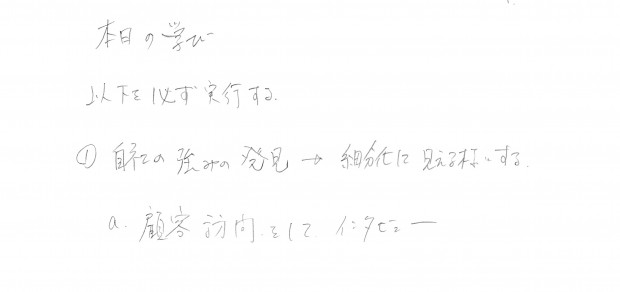 本日の学び
以下を必ず実行する.
① 自社の強みの発見 → 細分化に見える様にする.
a. 顧客訪問をして インタビュー